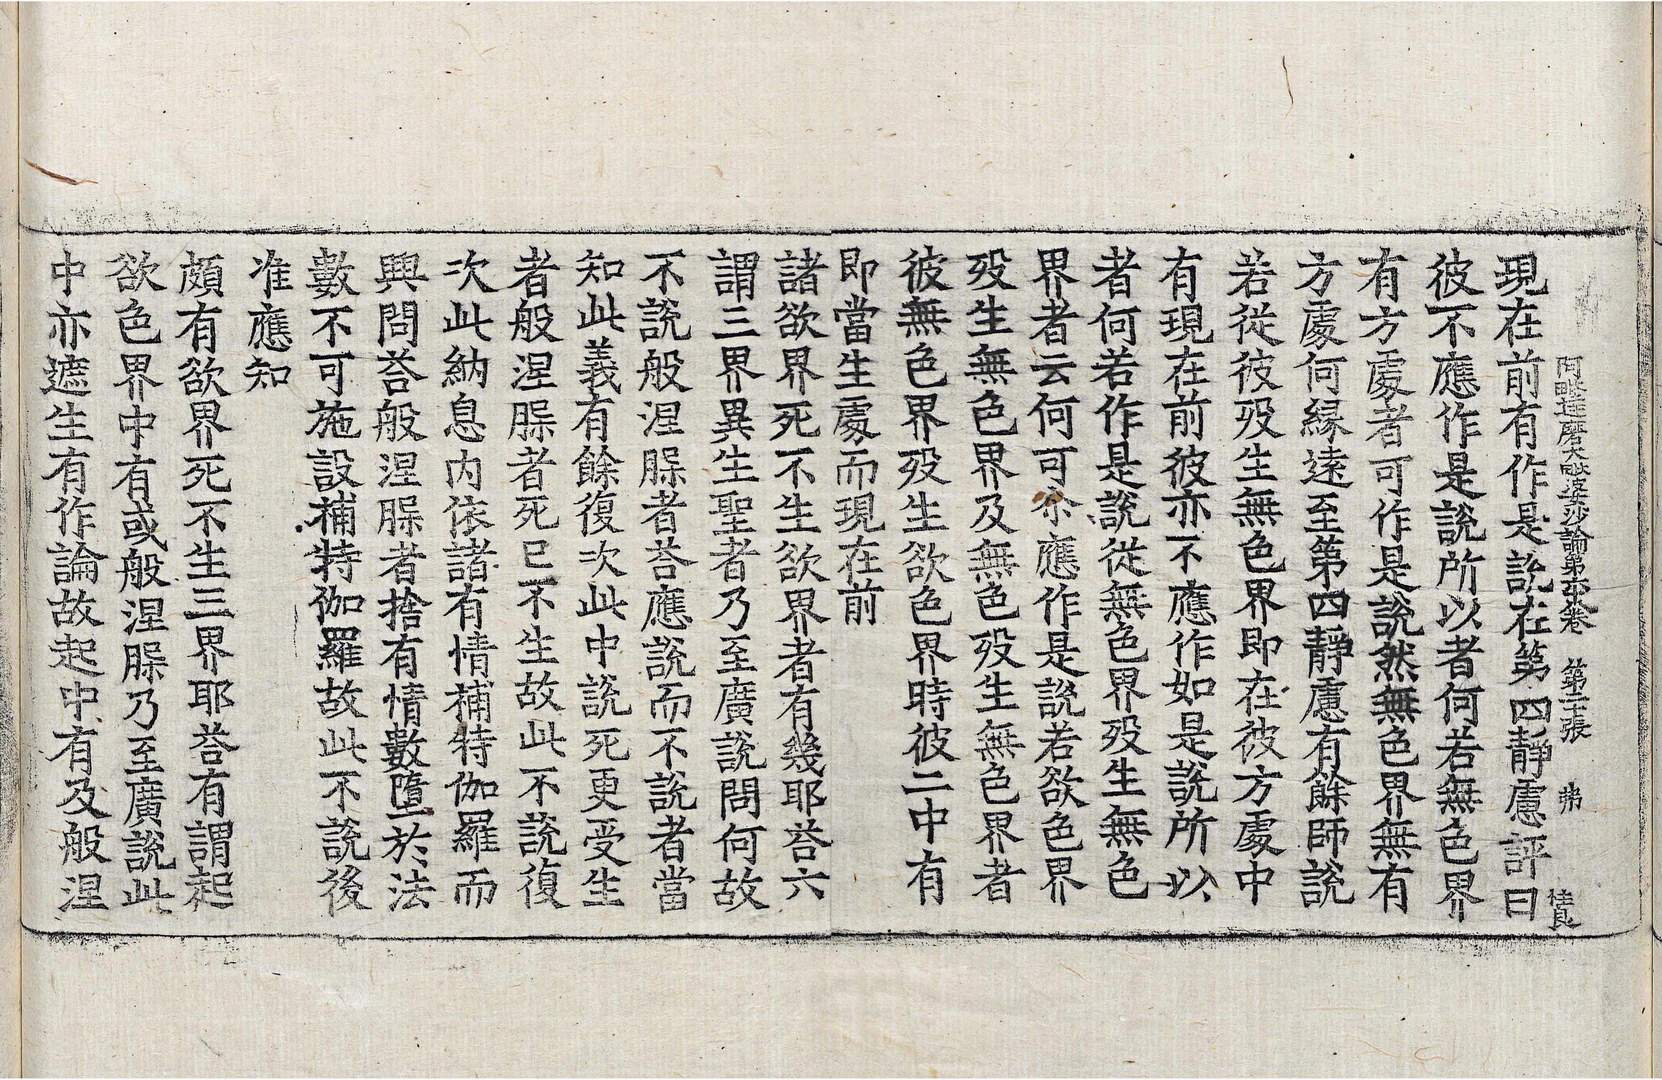 阿毗達磨大毗婆沙論第 卷 第二十張 桂良
現在前有作是說在第四靜慮評曰
彼不應作是說所以者何若無色界
有方處者可作是說然無色界無有
方處何緣遠至第四靜慮有餘師說
若從彼歿生無色界即在彼方處中
有現在前彼亦不應作如是說所以
者何若作是說從無色界歿生無色
界者云何可尒應作是說若欲色界
歿生無色界及無色歿生無色界者
彼無色界歿生欲色界時彼二中有
即當生處而現在前
諸欲界死不生欲界者有幾耶荅六
謂三界異生聖者乃至廣說問何故
不說般涅槃者荅應說而不說者當
知此義有餘復次此中說死更受生
者般涅槃者死已不生故此不說復
次此納息內依諸有情補特伽羅而
興問荅般涅槃者捨有情數墮於法
數不可施設補特伽羅故此不說後
准應知
頗有欲界死不生三界耶荅有謂起
欲色界中有或般涅槃乃至廣說此
中亦遮生有作論故起中有及般涅